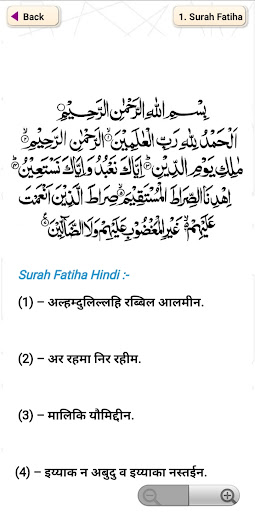 Back
1. Surah Fatiha
بِسْمِ اللهِ الرَّحْمٰنِ الرَّحِيْمِ
اَلْحَمْدُ لِلّٰهِ رَبِّ الْعٰلَمِيْنَ ۙ الرَّحْمٰنِ الرَّحِيْمِ ۙ
مٰلِكِ يَوْمِ الدِّيْنِ ۗ اِيَّاكَ نَعْبُدُ وَاِيَّاكَ نَسْتَعِيْنُ ۗ
اِهْدِنَا الصِّرَاطَ الْمُسْتَقِيْمَ ۙ صِرَاطَ الَّذِيْنَ اَنْعَمْتَ
عَلَيْهِمْ ۙ غَيْرِ الْمَغْضُوْبِ عَلَيْهِمْ وَلَا الضَّآلِّيْنَ
Surah Fatiha Hindi :-
(1) – अल्हम्दुलिल्लहि रब्बिल आलमीन.
(2) – अर रहमा निर रहीम.
(3) – मालिकि यौमिद्दीन.
(4) – इय्याक न अबुदु व इय्याका नस्तईन.